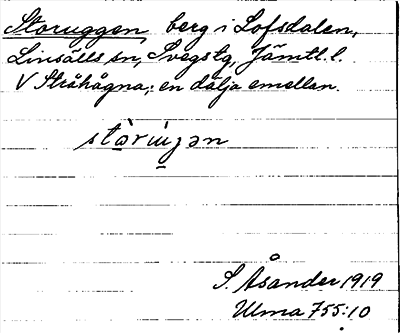 Storuggen, berg i Lofsdalen,
Linsälls sn, Svegs tg, Jämtl. l.
V Stråhågna; en dälja emellan.
S. Åsander 1919
Ulma 755:10